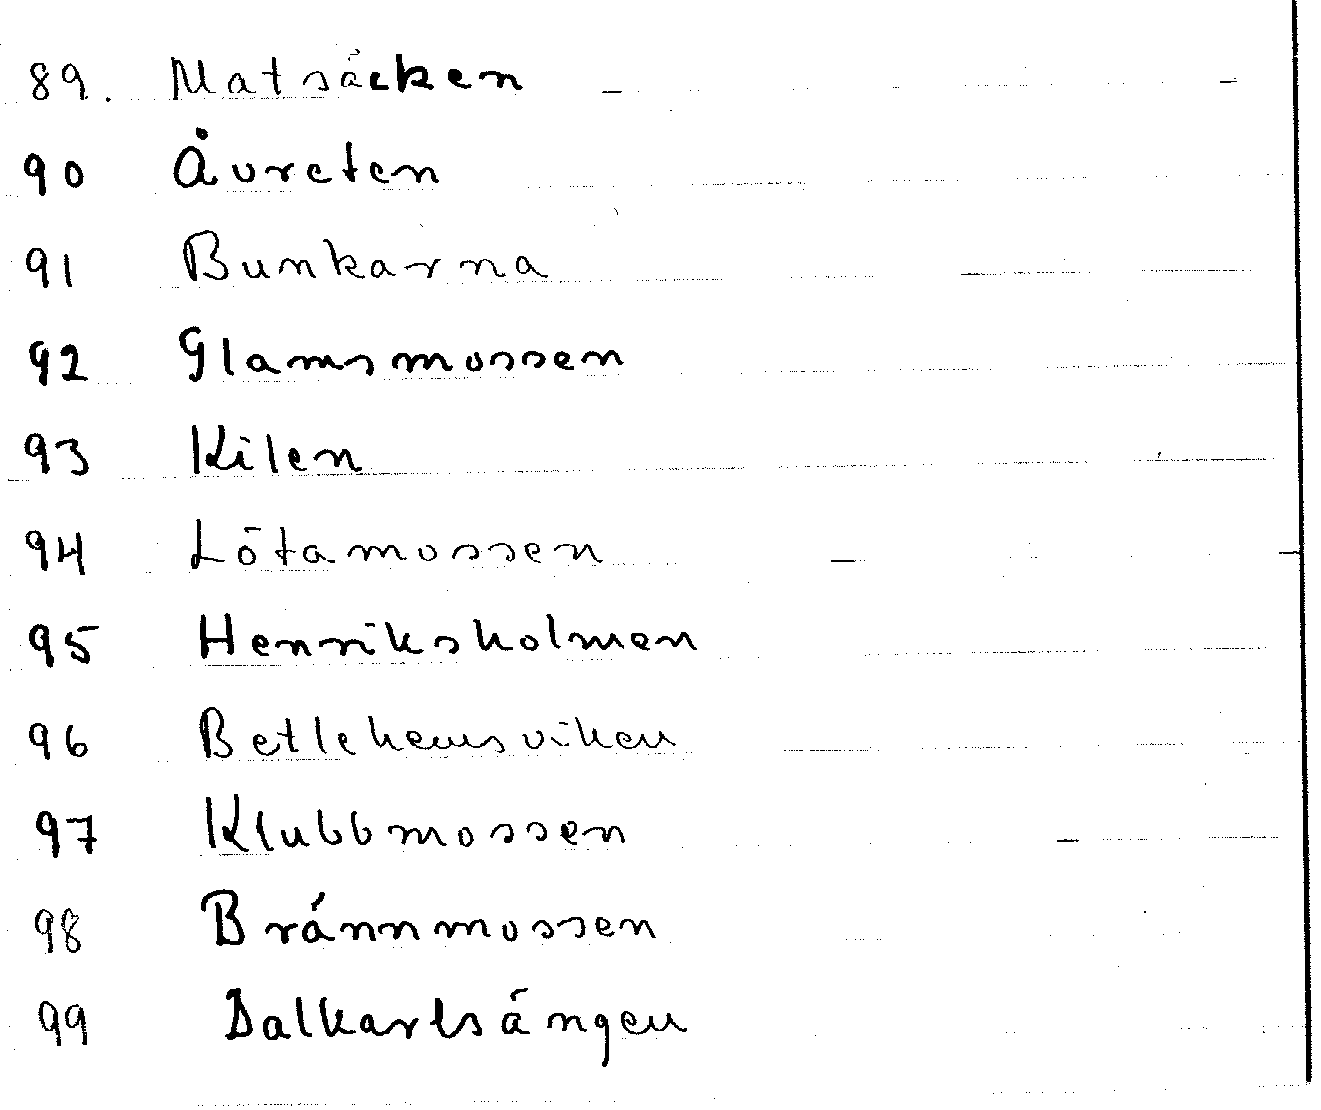 89. Matsäcken
90 Åvreten
91 Bunkarna
92 Glamsmossen
93 Kilen
94 Lötamossen
95 Henriksholmen
96 Betlehemsviken
97 Klubbmossen
98 Brännmossen
99 Dalkarlsängen